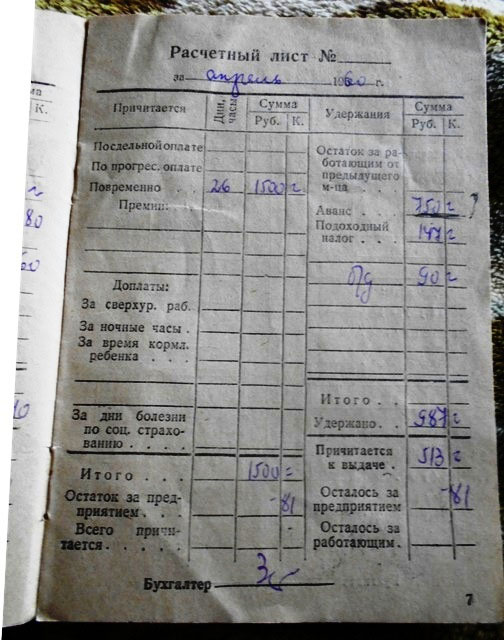 Расчетный лист №
за апрель 1960 г.
Причитается
Дни, часы
Сумма
Руб. К.
Удержания
Сумма
Руб. К.
Посдельной оплате
По прогрес. оплате
Повременно . . 26 1500
Премии:
Доплаты:
За сверхур. раб.
За ночные часы .
За время кормл.
ребенка . . .
За дни болезни
по соц. страхо-
ванию . . . .
Итого . . . . 1500
Остаток за пред-
приятием. . . . -81
Всего причи- -
тается. . . . .
Остаток за ра-
ботающим от
предыдущего
м-ца
Аванс . . . 750
Подоходный
налог . . . 147
90
Итого . . .
Удержано . . 987
Причитается
к выдаче . 513
Осталось за -81
предприятием
Осталось за
работающим.
Бухгалтер
7
ма
К.
80
60